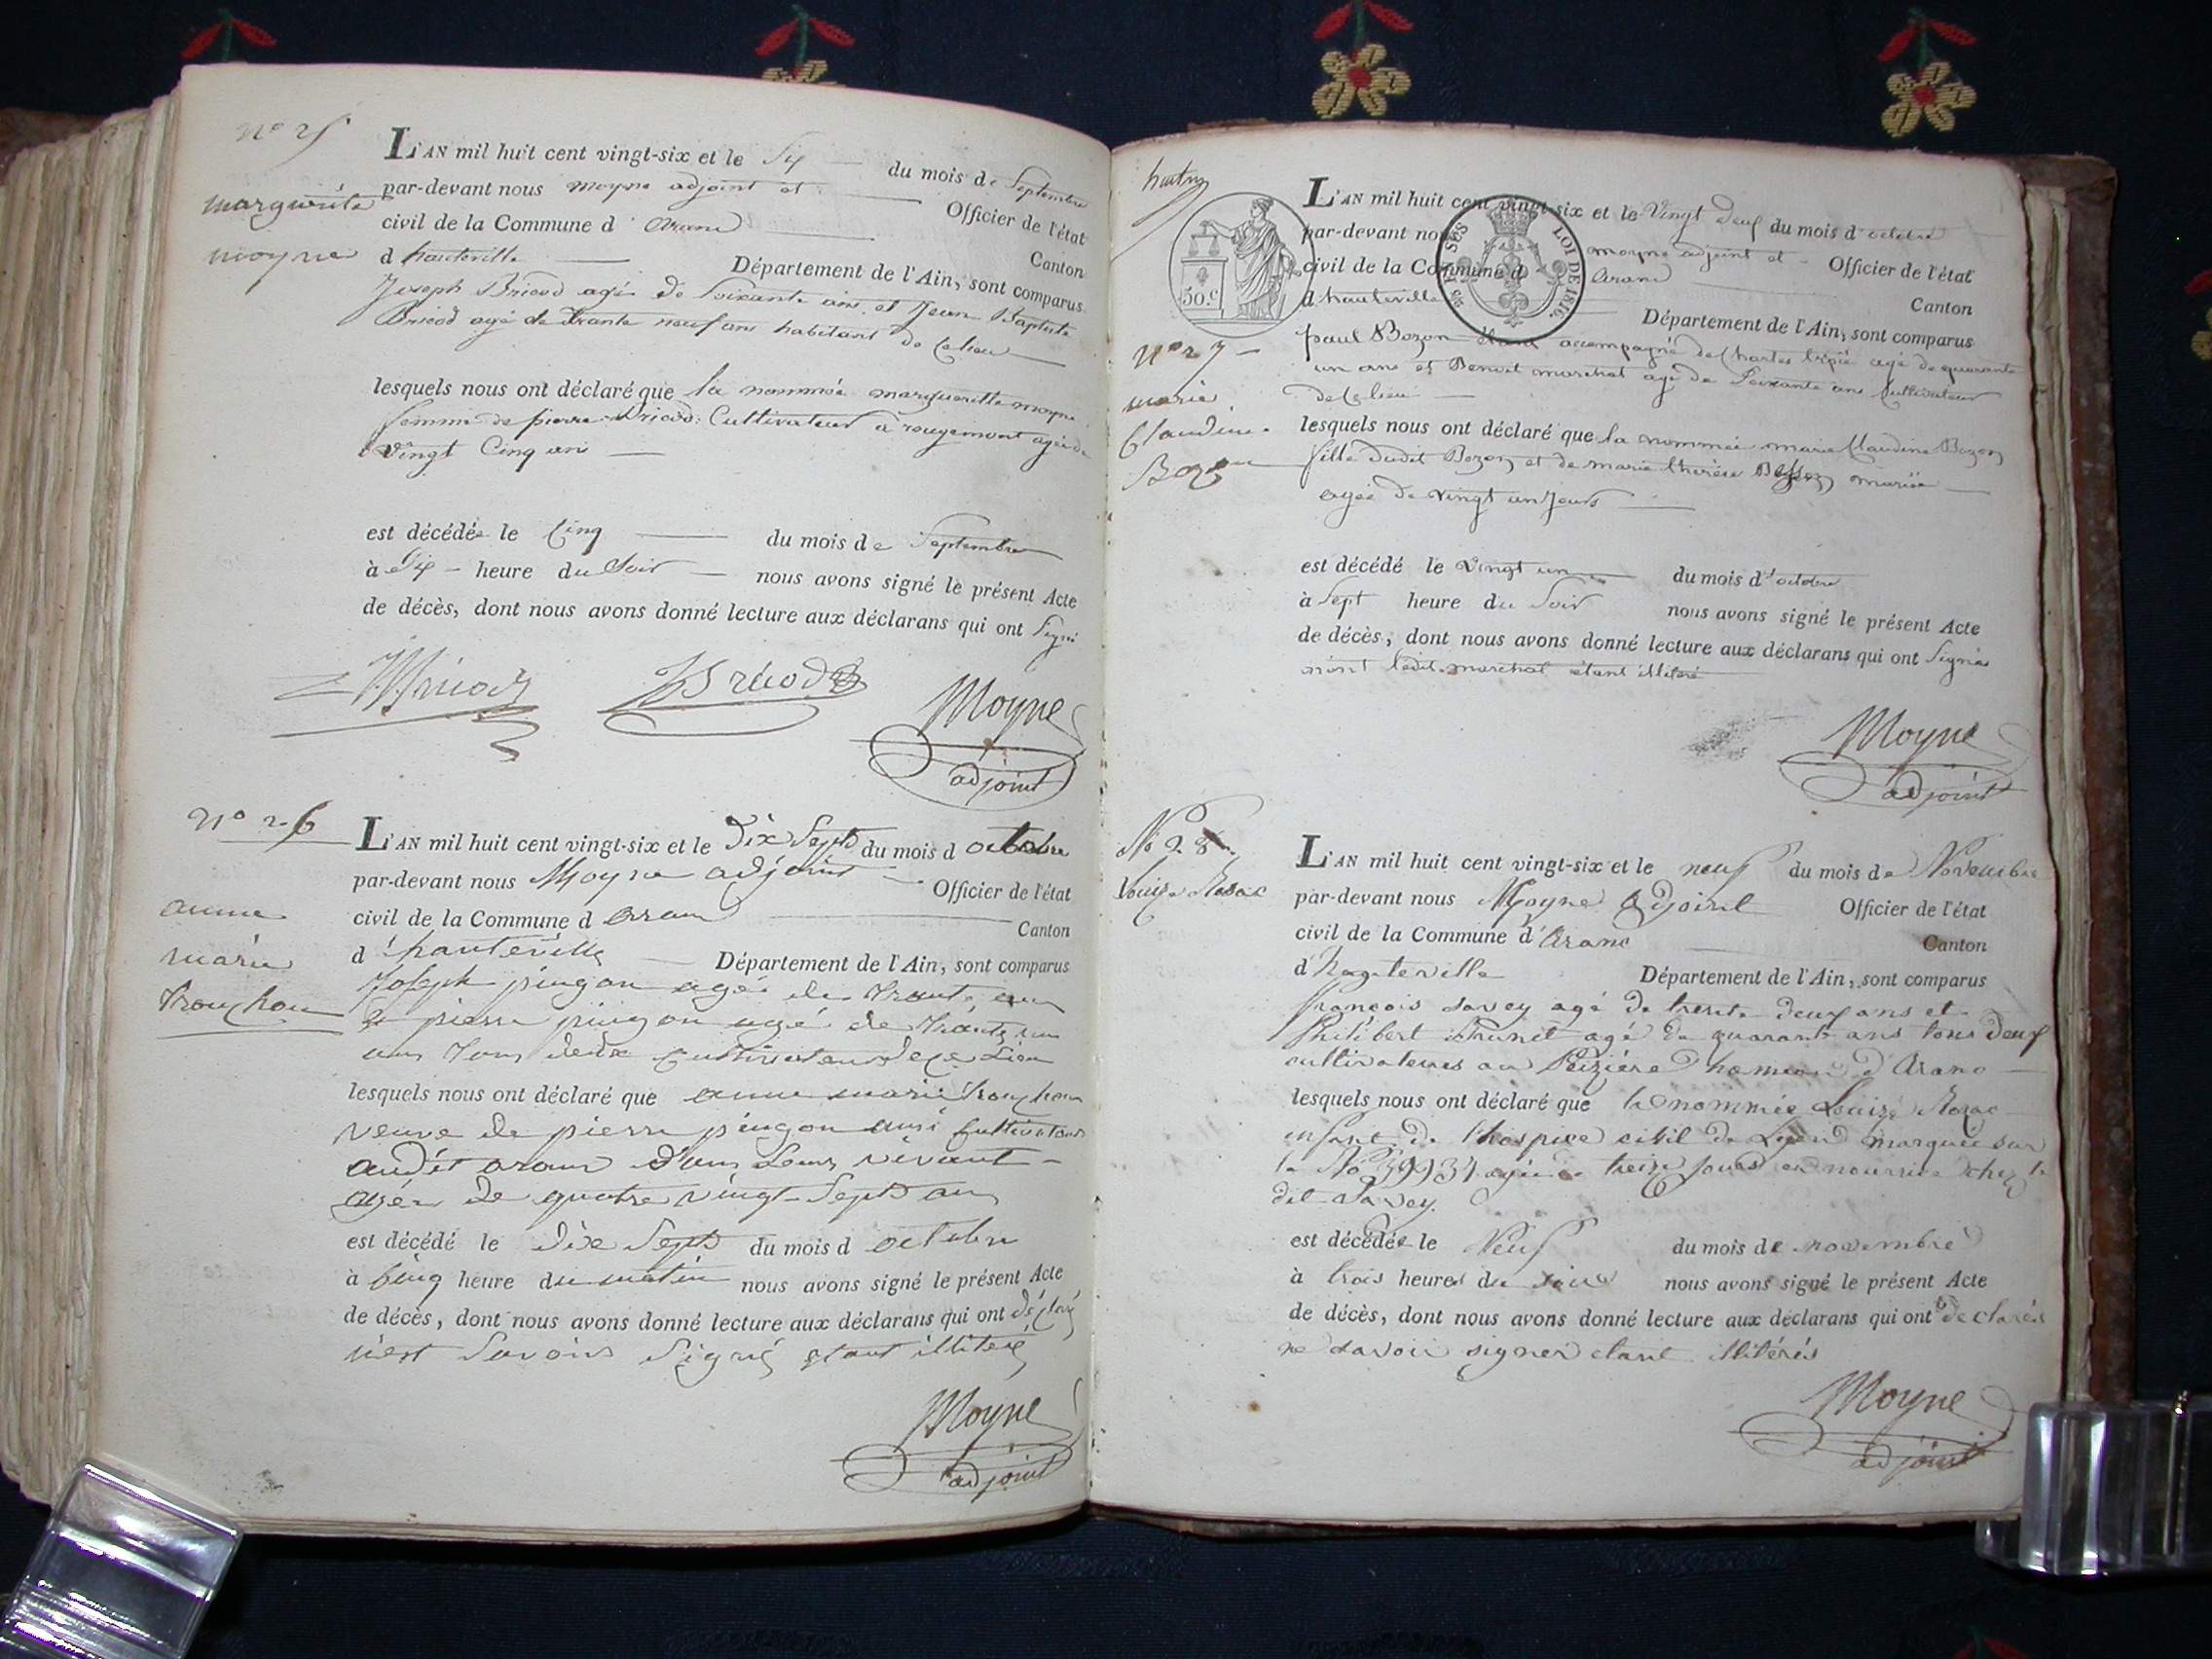 N° 25
marguerite
moyne
L'AN mil huit cent vingt-six et le Six du mois de Septembre
par-devant nous moyne adjoint et Officier de l'état
civil de la Commune d' Aranc Canton
d hauteville Département de l'Ain, sont comparus
Joseph Bricod agé de Soixante ans et Jean Baptiste
Bricod agé de trante neuf ans habitant de Celieu
lesquels nous ont déclaré que la nommée margueritte moyne
femme de pierre Bricod Cultivateur a rougemont agée de
Vingt Cinq ans
est décédée le Cinq du mois de Septembre
à Six heure du Soir nous avons signé le présent Acte
de décès, dont nous avons donné lecture aux déclarans qui ont Signé
Bricod
JBricod
Moyne
adjoint
N° 26
anne
marie
L'AN mil huit cent vingt-six et le Dix Sept du mois d octobre
par-devant nous Moyne adjoint Officier de l'état
civil de la Commune d Aranc Canton
d' hauteville Département de l'Ain, sont comparus
Joseph pingon agé de trante ans
et pierre pingon agé de trante un
ans tous deux Cultivateurs de Ce Lieu
lesquels nous ont déclaré que anne marie
veuve de pierre pingon aussi Cultivateur
audit aranc dans Leur vivant
agée de quatre vingt Sept ans
est décédé le dix Sept du mois d octobre
à Cinq heure du matin nous avons signé le présent Acte
de décès, dont nous avons donné lecture aux déclarans qui ont déclaré
n'est Savoir Signé etant illiteré
Moyne
adjoint
50.c
LOI DE 1816.
N° 27
marie
Claudine
Bozon
L'AN mil huit cent vingt-six et le Vingt deux du mois d' octobre
par-devant nous moyne adjoint et Officier de l'état
civil de la Commune d Aranc Canton
d hauteville Département de l'Ain, sont comparus
paul Bozon étant accompagné de Charles agé de quarante
un ans et Benoit marchat agé de Soixante ans Cultivateur
de Celieu
lesquels nous ont déclaré que la nommée marie Claudine Bozon
fille dudit Bozon et de marie thérèse Besson mariée
agée de vingt un jours
est décédé le vingt un du mois d' octobre
à Sept heure du Soir nous avons signé le présent Acte
de décès, dont nous avons donné lecture aux déclarans qui ont Signé
ledit marchat étant illiteré
Moyne
adjoint
N° 28.
L'AN mil huit cent vingt-six et le neuf du mois de Novembre
par-devant nous Moyne Adjoint Officier de l'état
civil de la Commune d' Aranc Canton
d' hauteville Département de l'Ain, sont comparus
françois Savey agé de trente deux ans et
Philibert Brunet agé de quarante ans tous deux
cultivateurs au hameau d'Aranc
lesquels nous ont déclaré que la nommée Louise
enfant de l'hospice civil de Lyon marquée sur
le No 39934 agée de treize jours en nourrice chez le
dit Savey.
est décédée le Neuf du mois de novembre
à trois heures du soir nous avons signé le présent Acte
de décès, dont nous avons donné lecture aux déclarans qui ont déclarés
ne savoir signer etant illitérés
Moyne
adjoint